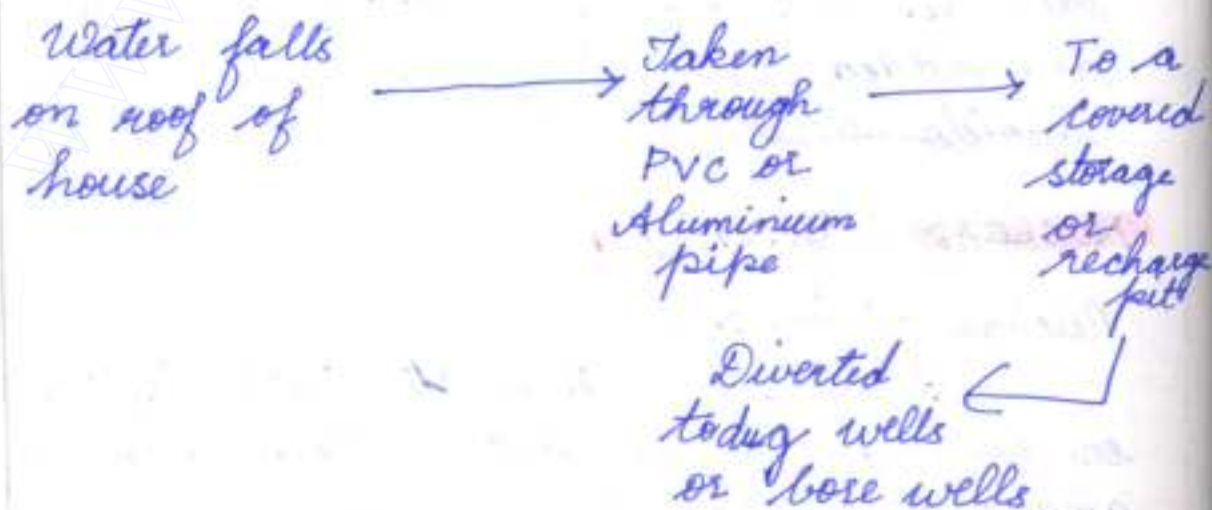 Water falls
on roof of
house
Taken
through
PVC or
Aluminium
pipe
To a
covered
storage
or
recharge
pit
Diverted
todug wells
or bore wells